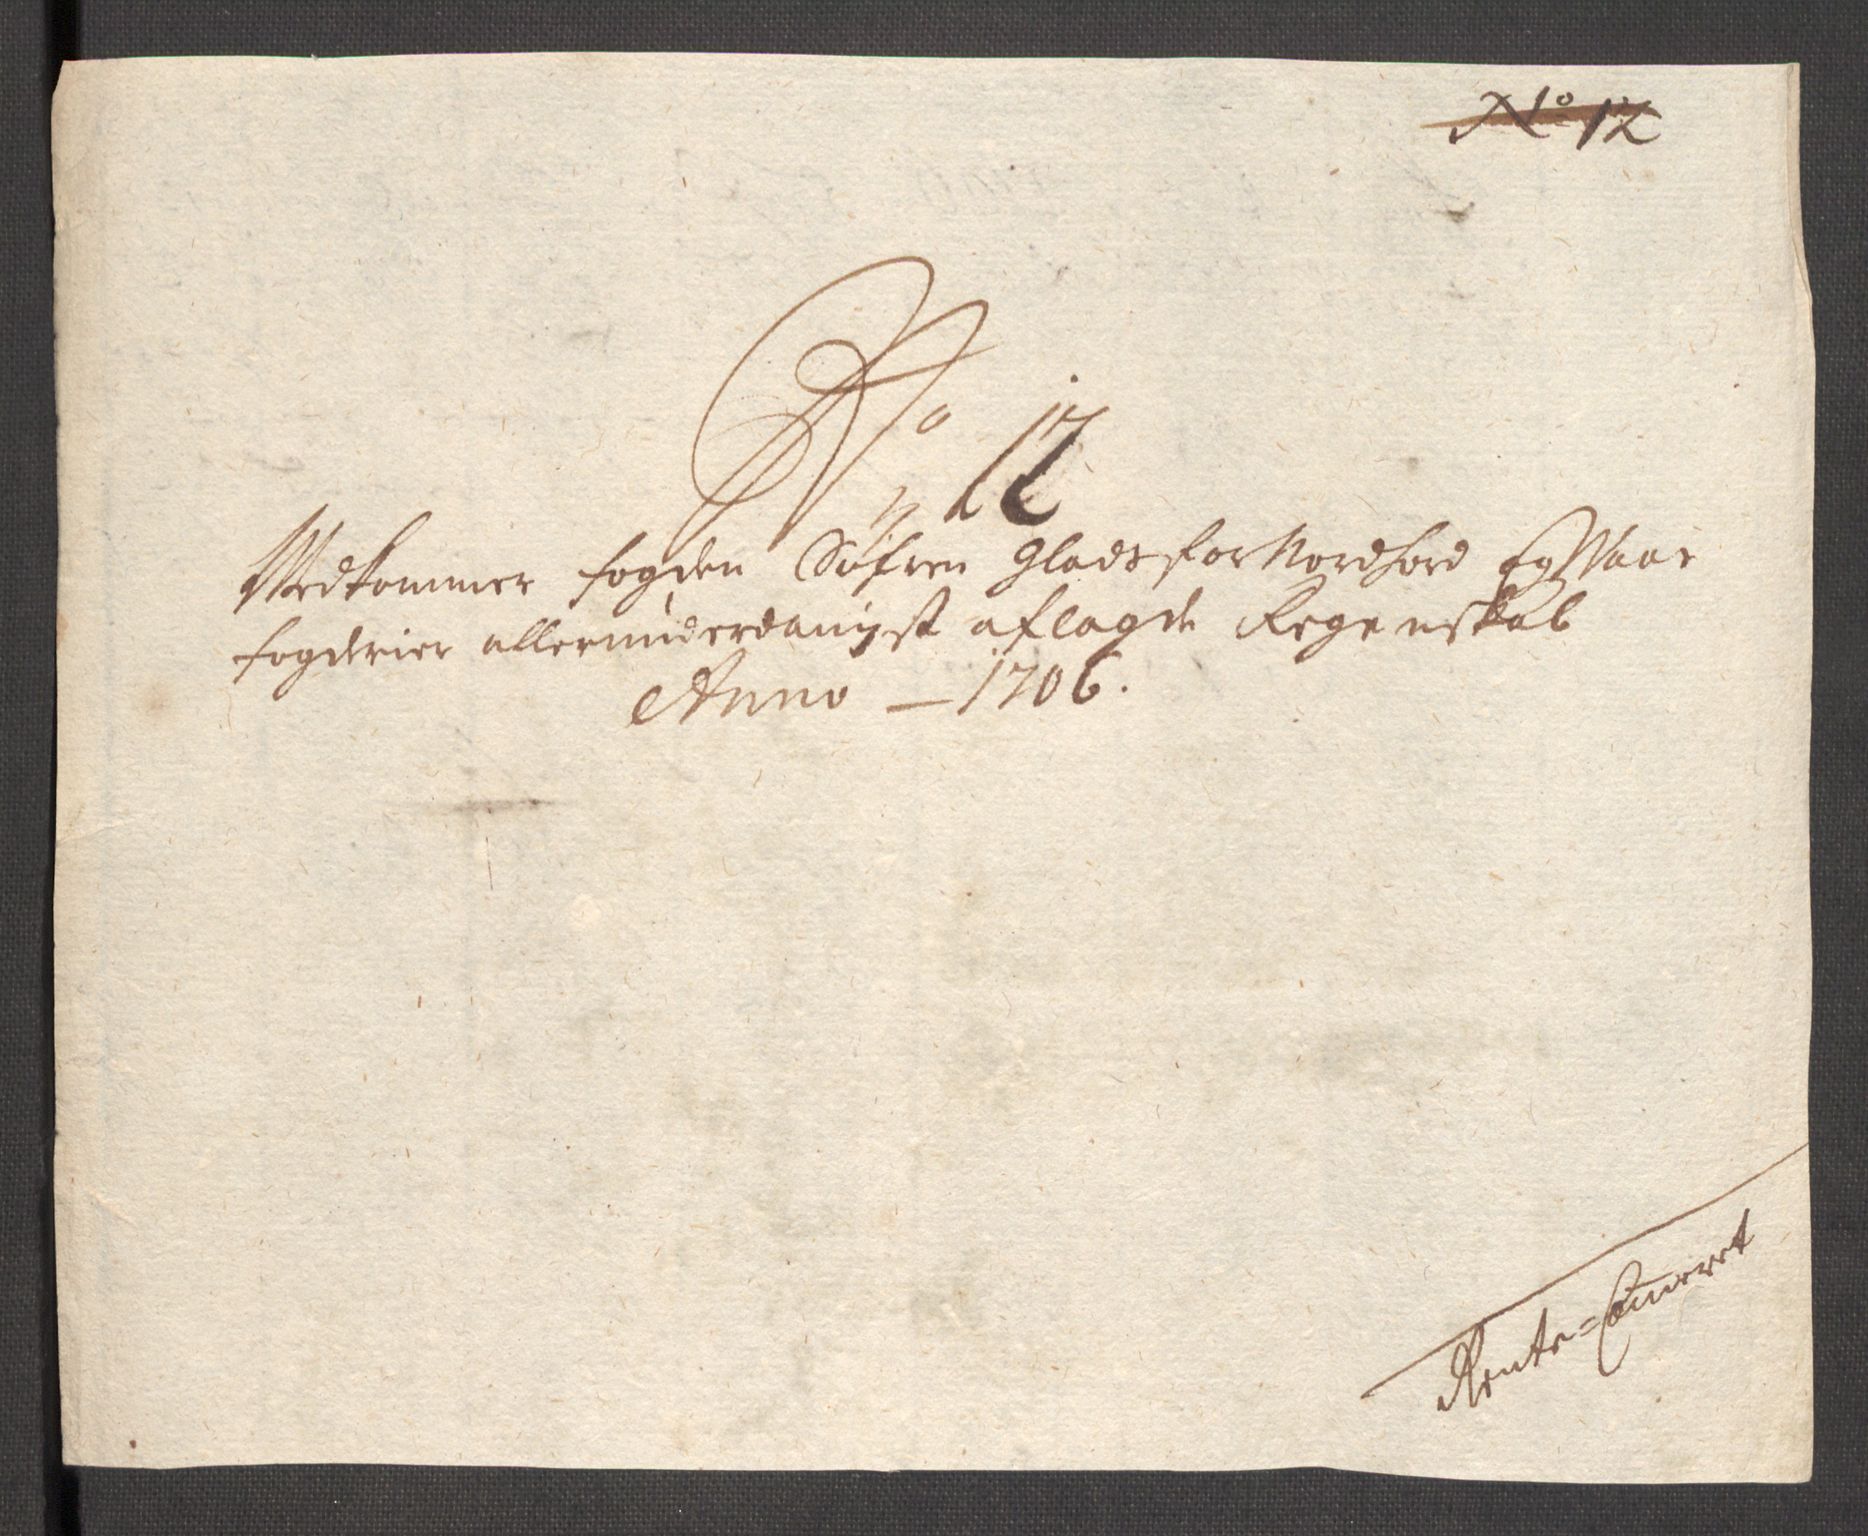 No 12
No 12
Vedkommer fogden Søfren Glads for Nordhord og Vaas
fogderier allerunderdanigst aflagde Regenskab
Anno - 1706.
Rente=Cammeret